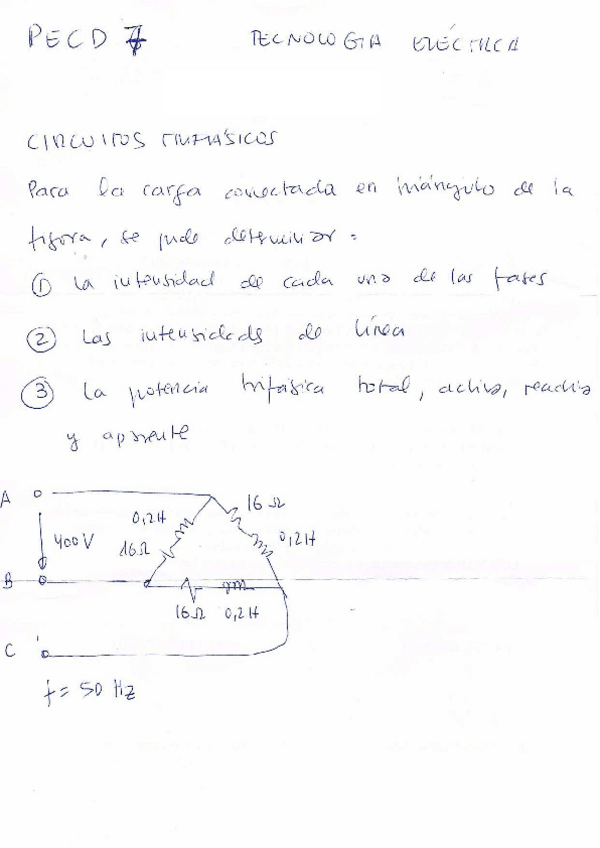 PECD 7 TECNOLOGIA ELÉCTRICA
CIRCUITOS TRIFÁSICOS
Para la carga conectada en triángulo de la
figura, se pide determinar:
① La intensidad de cada una de las fases
② Las intensidades de línea
③ La potencia trifásica total, activa, reactiva
y aparente
A 16 Ω
0,2H
400V 16Ω 0,2H
B
16Ω 0,2H
C
f = 50 Hz